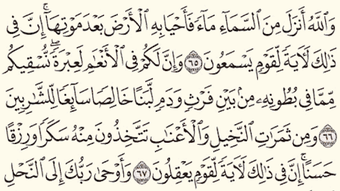 وَٱللَّهُ أَنزَلَ مِنَ ٱلسَّمَآءِ مَآءً فَأَحْيَا بِهِ ٱلْأَرْضَ بَعْدَ مَوْتِهَآ ۚ إِنَّ فِى
ذَٰلِكَ لَـَٔايَةً لِّقَوْمٍ يَسْمَعُونَ ٦٥ وَإِنَّ لَكُمْ فِى ٱلْأَنْعَـٰمِ لَعِبْرَةً ۖ نُّسْقِيكُم
مِّمَّا فِى بُطُونِهِۦ مِنۢ بَيْنِ فَرْثٍ وَدَمٍ لَّبَنًا خَالِصًا سَآئِغًا لِّلشَّـٰرِبِينَ
٦٦ وَمِن ثَمَرَٰتِ ٱلنَّخِيلِ وَٱلْأَعْنَـٰبِ تَتَّخِذُونَ مِنْهُ سَكَرًا وَرِزْقًا
حَسَنًا ۗ إِنَّ فِى ذَٰلِكَ لَـَٔايَةً لِّقَوْمٍ يَعْقِلُونَ ٦٧ وَأَوْحَىٰ رَبُّكَ إِلَى ٱلنَّحْلِ